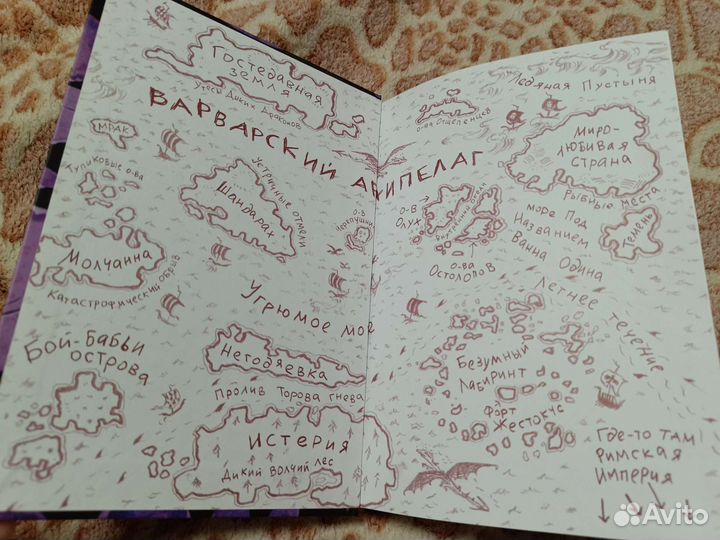 Гостедавная
земля
утёсы Диких Драконов
ВАРВАРСКИЙ АРХИПЕЛАГ
МРАК
Тупиковые о-ва
Устричные отмели
Шандалах
Молчанна
Катастрофический обрыв
Угрюмое море
Бой-Бабьи
острова
Негодяевка
Пролив Торова гнева
ИСТЕРИЯ
Дикий Волчий лес
Ледяная Пустыня
о-ва Отщепенцев
МИРО-
ЛЮБИВАЯ
СТРАНА
о-в
Черепушка
о-в
Олух
Внутренний океан
о-ва
Остолопов
Рыбные места
море Под
Названием
Ванна Одина
Темень
Летнее течение
Безумный
Лабиринт
Форт
Жестокус
Где-то там
Римская
Империя
Avito